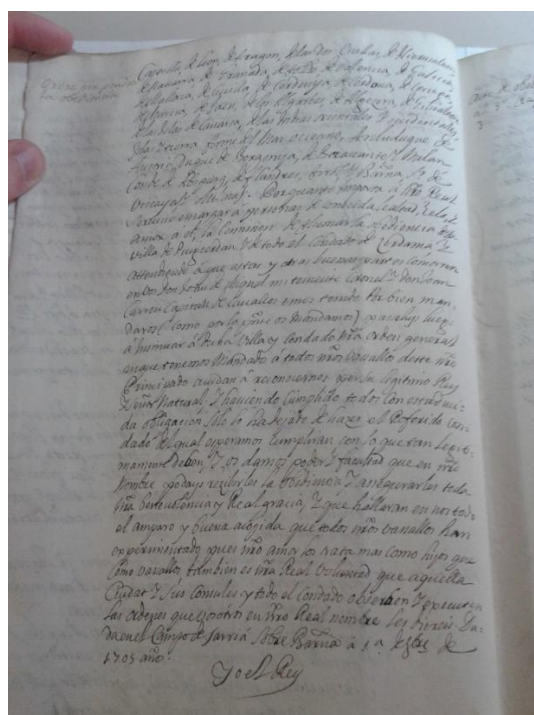 Orden para prender
la obediencia
Castilla, de Leon, de Aragon, de las dos Cicilias, de Hierusalem,
de Navarra, de Granada, de Toledo, de Valencia, de Galicia,
de Mallorca, de Sevilla, de Cerdenya, de Cordova, de Corcega,
de Murcia, de Jaen, de los Algarves, de Algecira, de Gibraltar,
de las Islas de Canaria, de las Indias orientales y occidentales,
Islas y tierra firme del Mar occeano, Archiduque de
Austria, Duque de Borgonya, de Bravante y Milan
Conde de Abspurg, de Flandres, Tirol y Barña, Sr. de
Viscaya y Molina &. Porquanto importa à Nro Real
Servicio encargar à personas de conocida calidad, zelo, y
amor à el, la Comission de tomar la obediencia de la
Villa de Puigcerdan y de todo el Condado de Cerdanya, y
attendiendo à que estas, y otras buenas partes concurren
en vos Don mi teniente Coronel y Don Juan
Capitan de Cavallos emos tenido por bien man-
daros (como por la pnte os mandamos) passeys luego
à à dicha Villa y Condado nra orden general
en que tenemos Mandado à todos nros vasallos deste nro
Principado acudan à reconocernos por su legitimo Rey
y Señor Natural, y haviendo cumplido todos con esta devi-
da obligacion solo lo ha dejado de hazer el Referido Con-
dado del qual esperamos cumpliran con lo que tan legiti-
mamente deben, y os damos poder y facultad que en nro
Nombre podays recibirles la obediencia y assegurarles toda
nra benevolencia y Real gracia, y que hallaran en nos todo
el amparo y buena acojida que todos nros vasallos han
experimentado pues nro amor los trata mas como hijos que
como vasallos, tambien es nra Real Voluntad que aquella
Ciudad y sus Consules y todo el condado observen y executen
las ordenes que vosotros en nro Real nombre les diereis Da-
da en el Campo de Sarria sobre Barña à 1.a de
1705 años.
Yo el Rey